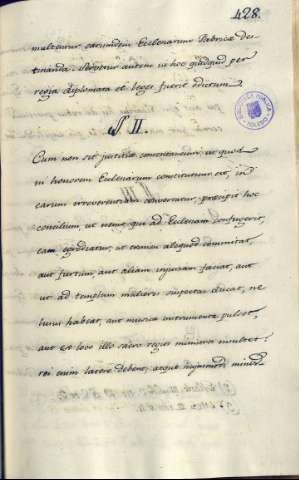 428.
multentur earumdem Ecclesiarum Fabricæ des-
tinanda. Servetur autem in hoc quidquid per
regia diplomata et leges fuerit edictum
§ II.
Cum non sit justitiæ consentaneum, ut quod
in honorem Ecclesiarum constitutum est, in
earum irreverentiam convertatur, præcipit hoc
concilium, ut nemo qui ad Ecclesiam confugerit,
eam egrediatur, ut crimen aliquod committat,
aut furtum, aut aliam injuriam faciat, aut
ut ad templum mulieres suspectas ducat, ne
ludus habeat, aut musica instrumenta pulset,
aut est loco illo sacro regios ministros insultet:
rei enim latere debent, atque hujusmodi
BIBLIOTECA PUBLICA
TOLEDO